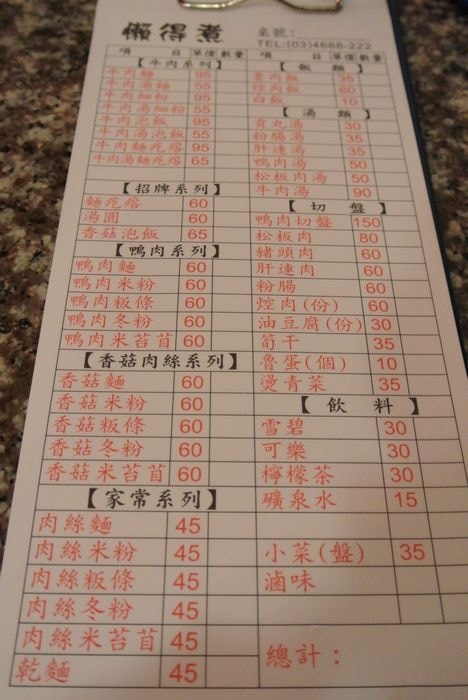 懶得煮
桌號:
TEL:(03)4688-222
項 目 單價 數量
【牛肉系列】
牛肉麵 95
牛肉湯麵 55
牛肉細粉 95
牛肉湯細粉 55
牛肉泡飯 95
牛肉湯泡飯 55
牛肉麵疙瘩 95
牛肉湯麵疙瘩 65
【招牌系列】
麵疙瘩 60
湯圓 60
香菇泡飯 65
【鴨肉系列】
鴨肉麵 60
鴨肉米粉 60
鴨肉粄條 60
鴨肉冬粉 60
鴨肉米苔苜 60
【香菇肉絲系列】
香菇麵 60
香菇米粉 60
香菇粄條 60
香菇冬粉 60
香菇米苔苜 60
【家常系列】
肉絲麵 45
肉絲米粉 45
肉絲粄條 45
肉絲冬粉 45
肉絲米苔苜 45
乾麵 45
項 目 單價 數量
【飯 類】
魯肉飯 35
控肉飯 60
白飯 10
【湯 類】
貢丸湯 30
粉腸湯 35
肝連湯 35
鴨肉湯 50
松板肉湯 50
牛肉湯 90
【切 盤】
鴨肉切盤 150
松板肉 80
豬頭肉 60
肝連肉 60
粉腸 60
焢肉(份) 60
油豆腐(份) 30
筍干 35
魯蛋(個) 10
燙青菜 35
【飲 料】
雪碧 30
可樂 30
檸檬茶 30
礦泉水 15
小菜(盤) 35
滷味
總計: